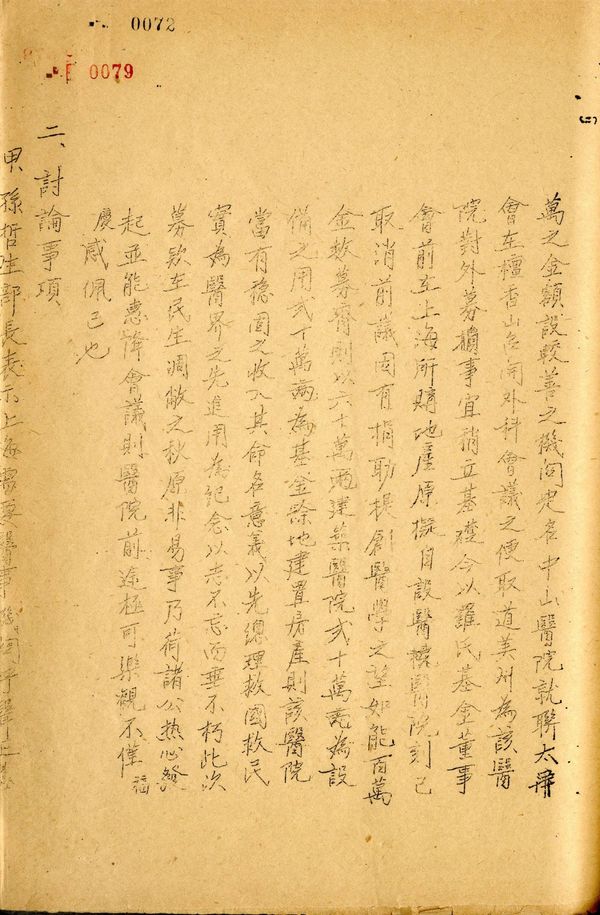 0072
0079
萬之金額設較善之機関定名中山醫院就聯太平
會在檀香山召開外科會議之便取道美洲為該醫
院對外募積事宜稍立基礎今以羅氏基金董事
會前在上海所購地產原擬自設醫校醫院刻已
取消前議因有捐助提創醫學之望如能百萬
金救募齊則以六十萬兩建築醫院弍十萬兩為設
備之用弍十萬兩為基金餘地建置房產則該醫院
當有穩固之收入其命名意義以先總理救國救民
實為醫界之先進用為紀念以志不忘而垂不朽此次
募欵在民生凋敝之秋原非易事乃荷諸公热心發
起並能惠降會議則醫院前途極可樂觀不僅福
慶感佩已也
二、討論事項
甲、孫哲生部長表示上海需要醫事機関